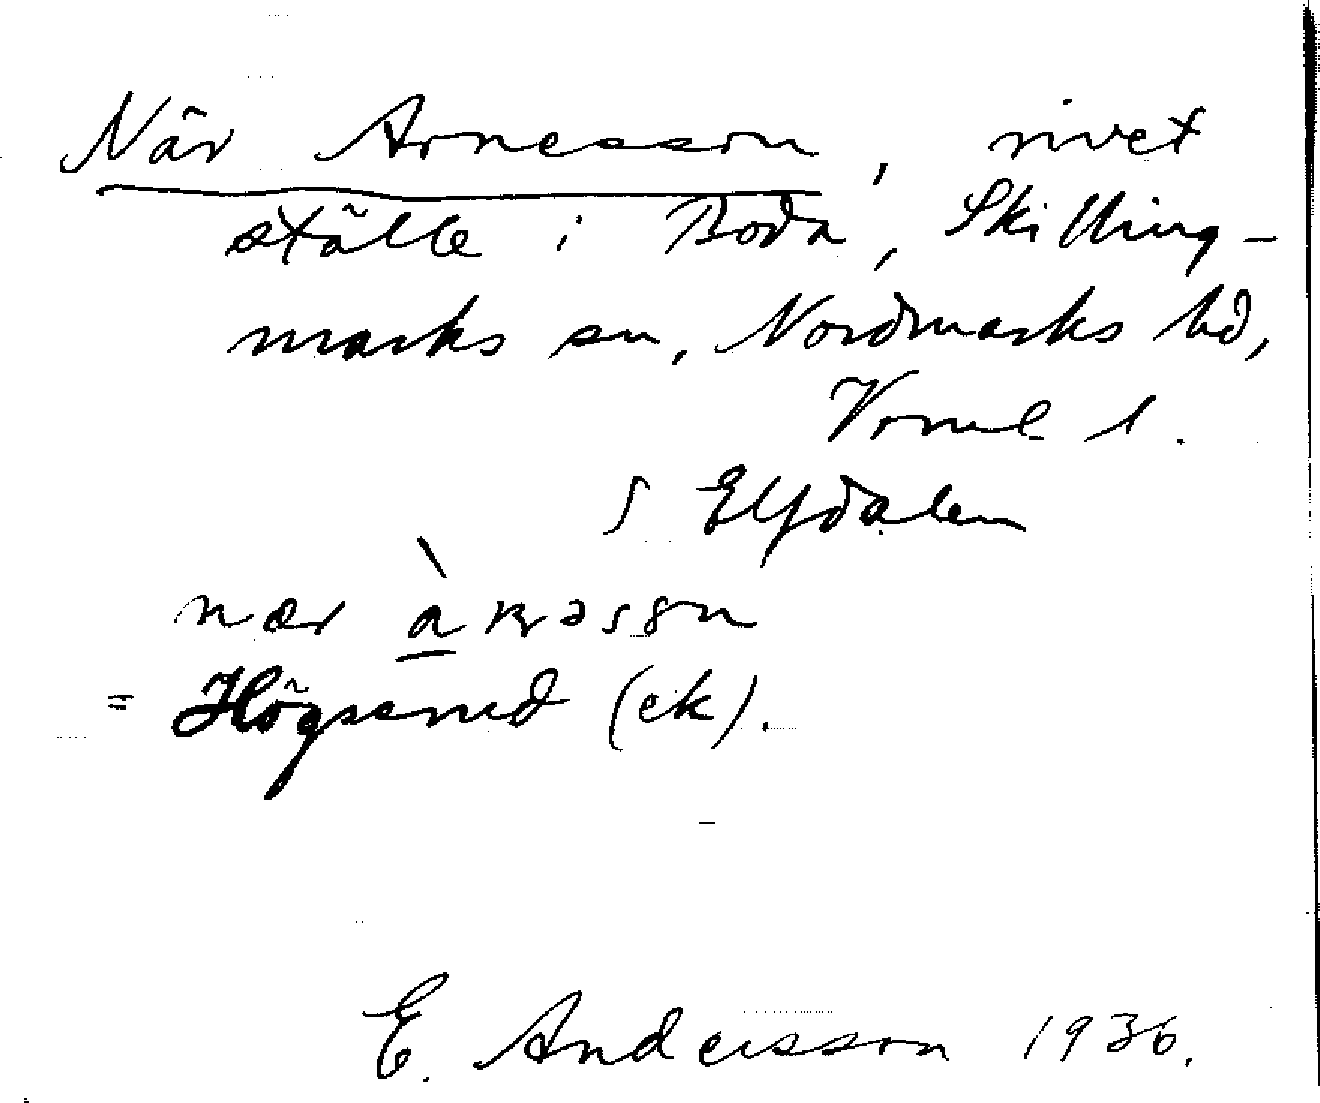 När Arnesson, rivet
ställe i Boda, Skilling-
marks sn, Nordmarks hd,
Vrml l.
S Elfdalen
nær
= Högserud (ek).
E. Andersson 1936.